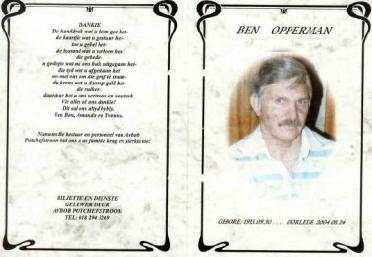 DANKIE
Die handdruk wat u kom gee het-
die kaartjie wat u gestuur het-
tot u gebel het-
die bystand wat u verleen het-
die gebede-
u gedagte wat na ons huis uitgegaan het-
die tyd wat u afgestaan het
om met ons om die graf te staan-
die krans wat u daarop gelê het-
die ruiker-
daardeur het u ons vertroos en versterk
Vir alles sê ons dankie!
Dit sal ons altyd bybly.
Van Ben, Amanda en Yvonne,
Namens die bestuur en personeel van Avbob
Potchefstroom bid ons u as familie krag en sterkte toe!
BILJETTE EN DIENSTE
GELEWER DEUR
AVBOB POTCHEFSTROOM
TEL: 018 294 3269
BEN OPPERMAN
GEBORE: 1935.09.30 . . . OORLEDE: 2004.08.24